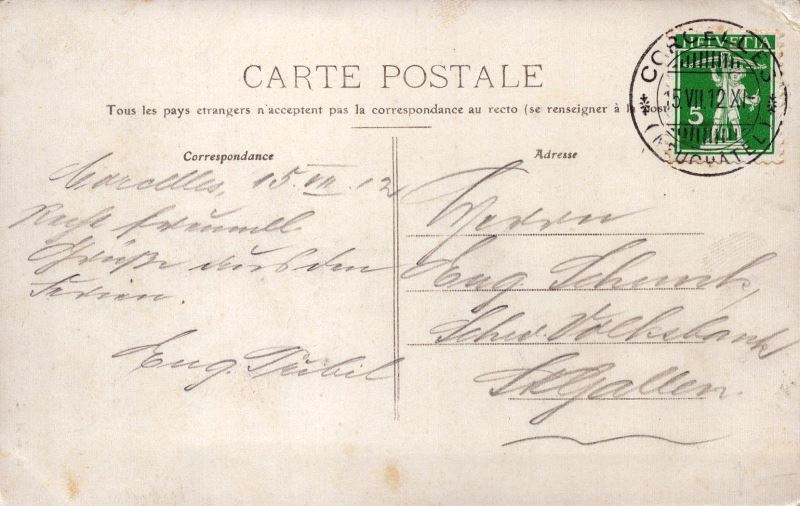 CARTE POSTALE
Tous les pays etrangers n'acceptent pas la correspondance au recto (se renseigner à la post
CORCELLES
15.VII.12.XI
(NEUCHATEL)
HELVETIA
5
Correspondance
Corcelles, 15. VII. 12
Recht freundl
Grüße aus den
Ferien.
Eug.
Adresse
Herrn
Eug. Schenk,
Schw. Volksbank
St. Gallen.